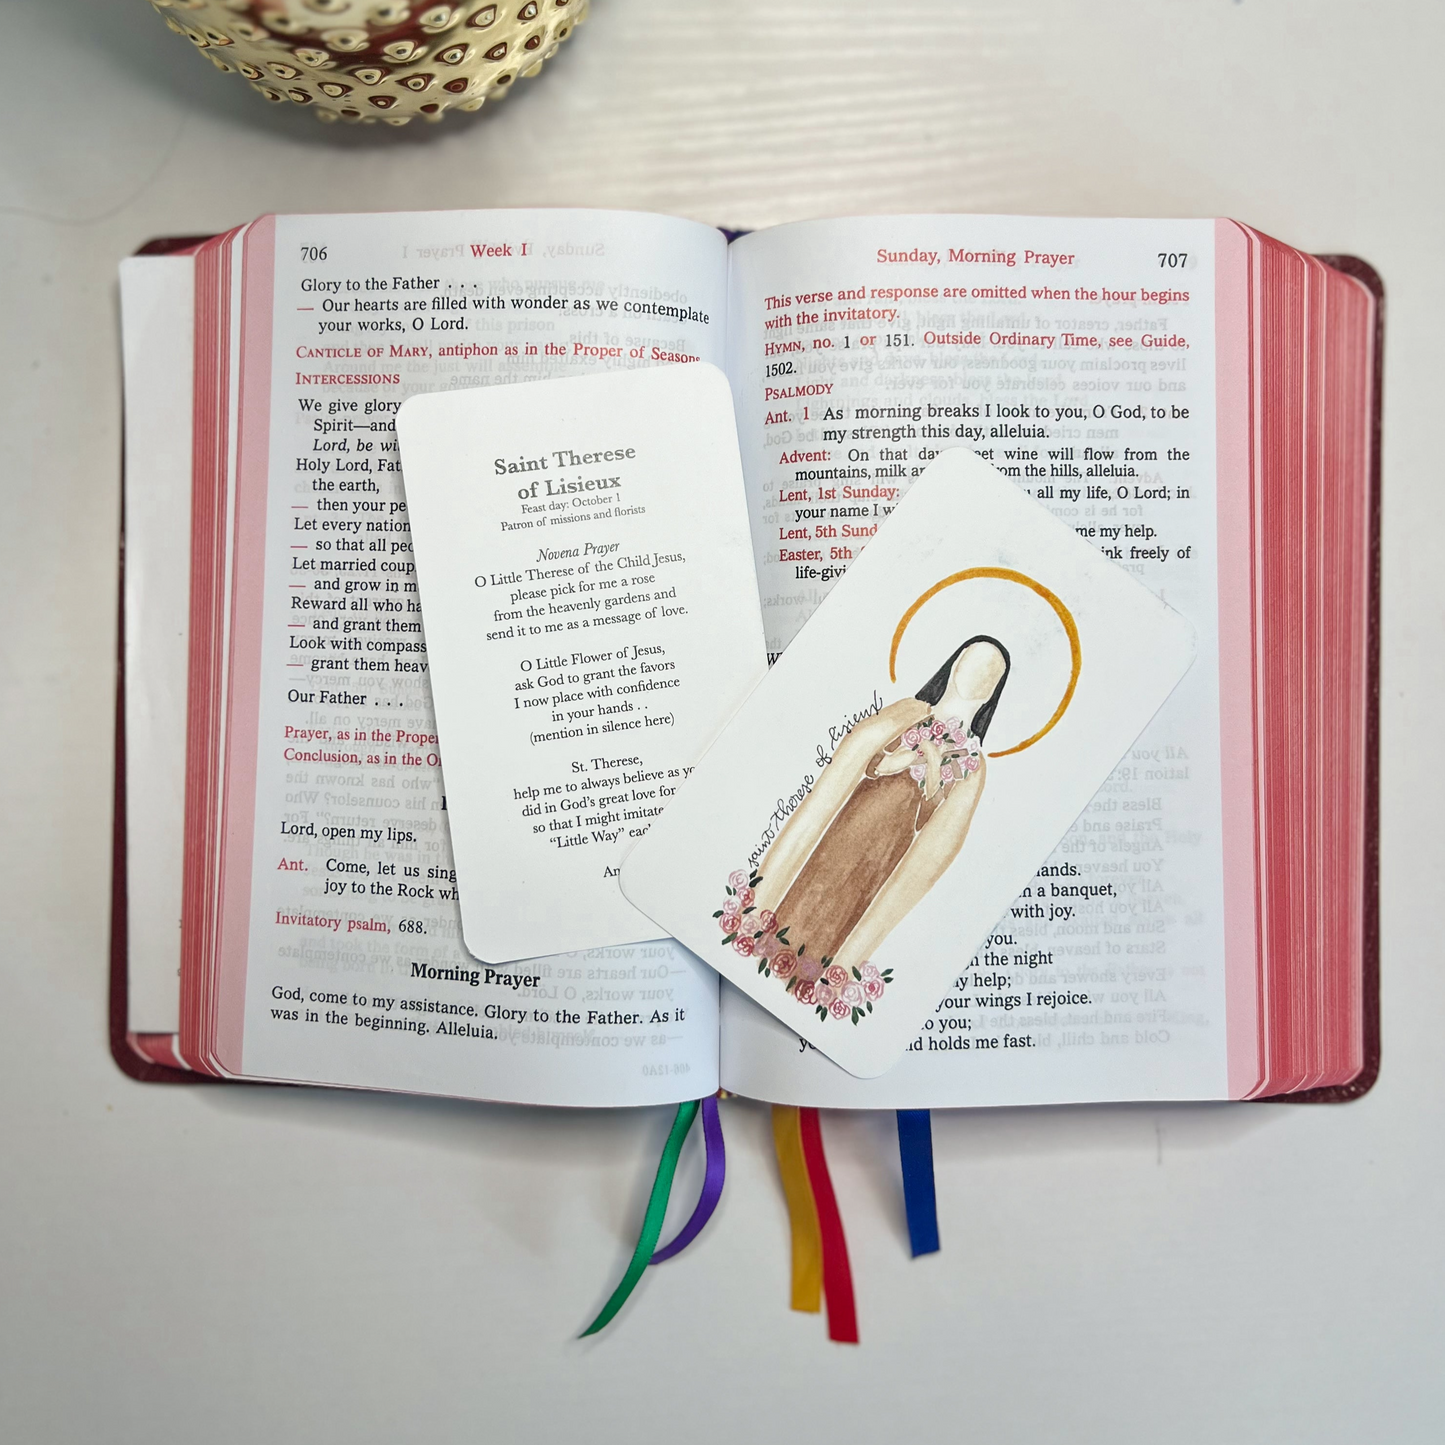 706 Week I
Glory to the Father . . .
— Our hearts are filled with wonder as we contemplate
your works, O Lord.
CANTICLE OF MARY, antiphon as in the Proper of Seasons
INTERCESSIONS
We give glory
Spirit—and
Lord, be
Holy Lord,
the earth,
— then your
Let every nation
— so that all
Let married
— and grow in
Reward all who
— and grant them
Look with
— grant them
Our Father . . .
Prayer, as in the
Conclusion, as in the
Lord, open my lips.
Ant. Come, let us sing
joy to the Rock
Invitatory psalm, 688.
Morning Prayer
God, come to my assistance. Glory to the Father. As it
was in the beginning. Alleluia.
Saint Therese
of Lisieux
Feast day: October 1
Patron of missions and florists
Novena Prayer
O Little Therese of the Child Jesus,
please pick for me a rose
from the heavenly gardens and
send it to me as a message of love.
O Little Flower of Jesus,
ask God to grant the favors
I now place with confidence
in your hands . .
(mention in silence here)
St. Therese,
help me to always believe as
did in God's great love for
so that I might imitate
"Little Way"
Sunday, Morning Prayer 707
This verse and response are omitted when the hour begins
with the invitatory.
HYMN, no. 1 or 151. Outside Ordinary Time, see Guide,
1502.
PSALMODY
Ant. 1 As morning breaks I look to you, O God, to be
my strength this day, alleluia.
Advent: On that wine will flow from the
mountains, milk from the hills, alleluia.
Lent, 1st Sunday: all my life, O Lord; in
your name I
Lent, 5th me my help.
Easter, 5th freely of
saint therese of lisieux
a banquet,
with joy.
you.
the night
my help;
your wings I rejoice.
to you;
holds me fast.